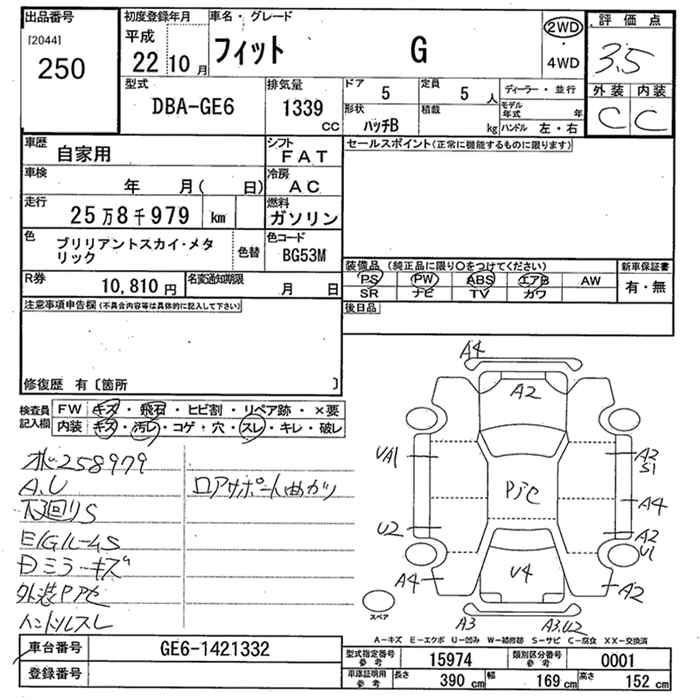 出品番号 初度登録年月 車名・グレード 2WD 評価点
[2044] 平成
250 22 10月 フィット G 4WD 3.5
型式 排気量 ドア 定員 ディーラー・並行 外装 内装
DBA-GE6 1339 cc 5 5人 モデル年式 年 C C
形状 積載
ハッチB kg ハンドル 左・右
車歴 自家用 シフト FAT セールスポイント(正常に機能するものに限ります)
車検 年 月( 日) 冷房 AC
走行 25万8千979 km 燃料 ガソリン
色 ブリリアントスカイ・メタリック 色替 色コード BG53M
装備品 (純正品に限り○をつけてください) 新車保証書
R券 10,810円 名変通知期限 月 日 PS PW ABS エアB AW 有・無
SR ナビ TV カワ
注意事項申告欄(不具合内容等は具体的に記入して下さい) 後日品
修復歴 有〔箇所 〕
検査員記入欄 FW キズ・飛石・ヒビ割・リペア跡・×要
内装 キズ・汚レ・コゲ・穴・スレ・キレ・破レ
258979
A.U ロアサポート曲がり
下回りS
E/GルームS
Dミラーキズ
外装Pアセ
ハンドルスレ
A4
A2
UA1 A2
S1
PアセA4
U2 A2
U1
A4 U4 A2
スペア A3 A3.U2
A-キズ E-エクボ U-凹み W-補修跡 S-サビ C-腐食 XX-交換済
車台番号 GE6-1421332 型式指定番号 参考 15974 類別区分番号 参考 0001
登録番号 車庫証明用 参考 長さ 390 cm 幅 169 cm 高さ 152 cm